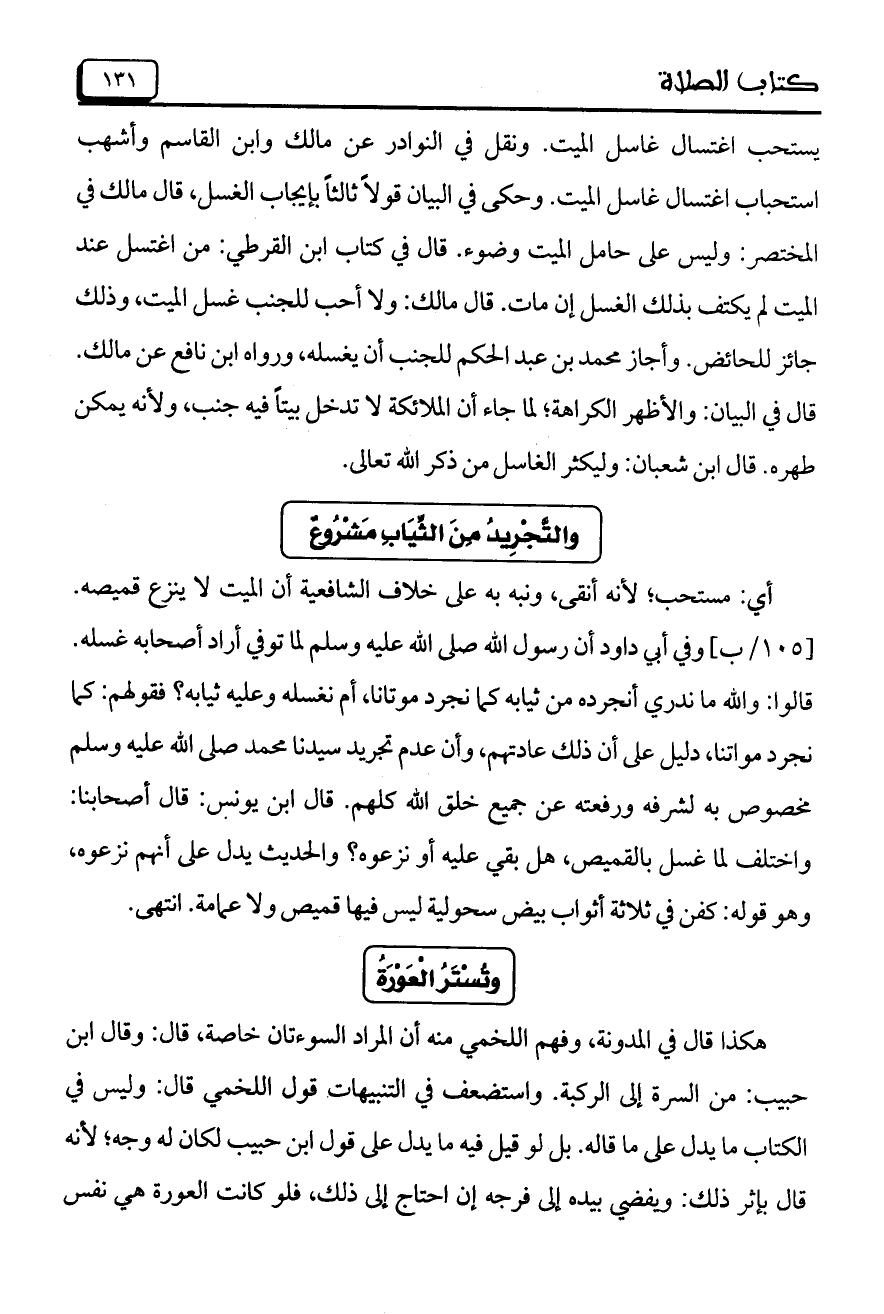 كتاب الصلاة
١٣١
يستحب اغتسال غاسل الميت. ونقل في النوادر عن مالك وابن القاسم وأشهب
استحباب اغتسال غاسل الميت. وحكى في البيان قولاً ثالثاً بإيجاب الغسل، قال مالك في
المختصر: وليس على حامل الميت وضوء. قال في كتاب ابن القرطي: من اغتسل عند
الميت لم يكتف بذلك الغسل إن مات. قال مالك: ولا أحب للجنب غسل الميت، وذلك
جائز للحائض. وأجاز محمد بن عبد الحكم للجنب أن يغسله، ورواه ابن نافع عن مالك.
قال في البيان: والأظهر الكراهة؛ لما جاء أن الملائكة لا تدخل بيتاً فيه جنب، ولأنه يمكن
طهره. قال ابن شعبان: وليكثر الغاسل من ذكر الله تعالى.
والتَّجْرِيدُ مِنَ الثِّيَابِ مَشْرُوعٌ
أي: مستحب؛ لأنه أنقى، ونبه به على خلاف الشافعية أن الميت لا ينزع قميصه.
[١٠٥/ ب] وفي أبي داود أن رسول الله صلى الله عليه وسلم لما توفي أراد أصحابه غسله.
قالوا: والله ما ندري أنجرده من ثيابه كما نجرد موتانا، أم نغسله وعليه ثيابه؟ فقولهم: كما
نجرد مواتنا، دليل على أن ذلك عادتهم، وأن عدم تجريد سيدنا محمد صلى الله عليه وسلم
مخصوص به لشرفه ورفعته عن جميع خلق الله كلهم. قال ابن يونس: قال أصحابنا:
واختلف لما غسل بالقميص، هل بقي عليه أو نزعوه؟ والحديث يدل على أنهم نزعوه،
وهو قوله: كفن في ثلاثة أثواب بيض سحولية ليس فيها قميص ولا عمامة. انتهى.
وتُسْتَرُ الْعَوْرَةُ
هكذا قال في المدونة، وفهم اللخمي منه أن المراد السوءتان خاصة، قال: وقال ابن
حبيب: من السرة إلى الركبة. واستضعف في التنبيهات قول اللخمي قال: وليس في
الكتاب ما يدل على ما قاله. بل لو قيل فيه ما يدل على قول ابن حبيب لكان له وجه؛ لأنه
قال بإثر ذلك: ويفضي بيده إلى فرجه إن احتاج إلى ذلك، فلو كانت العورة هي نفس